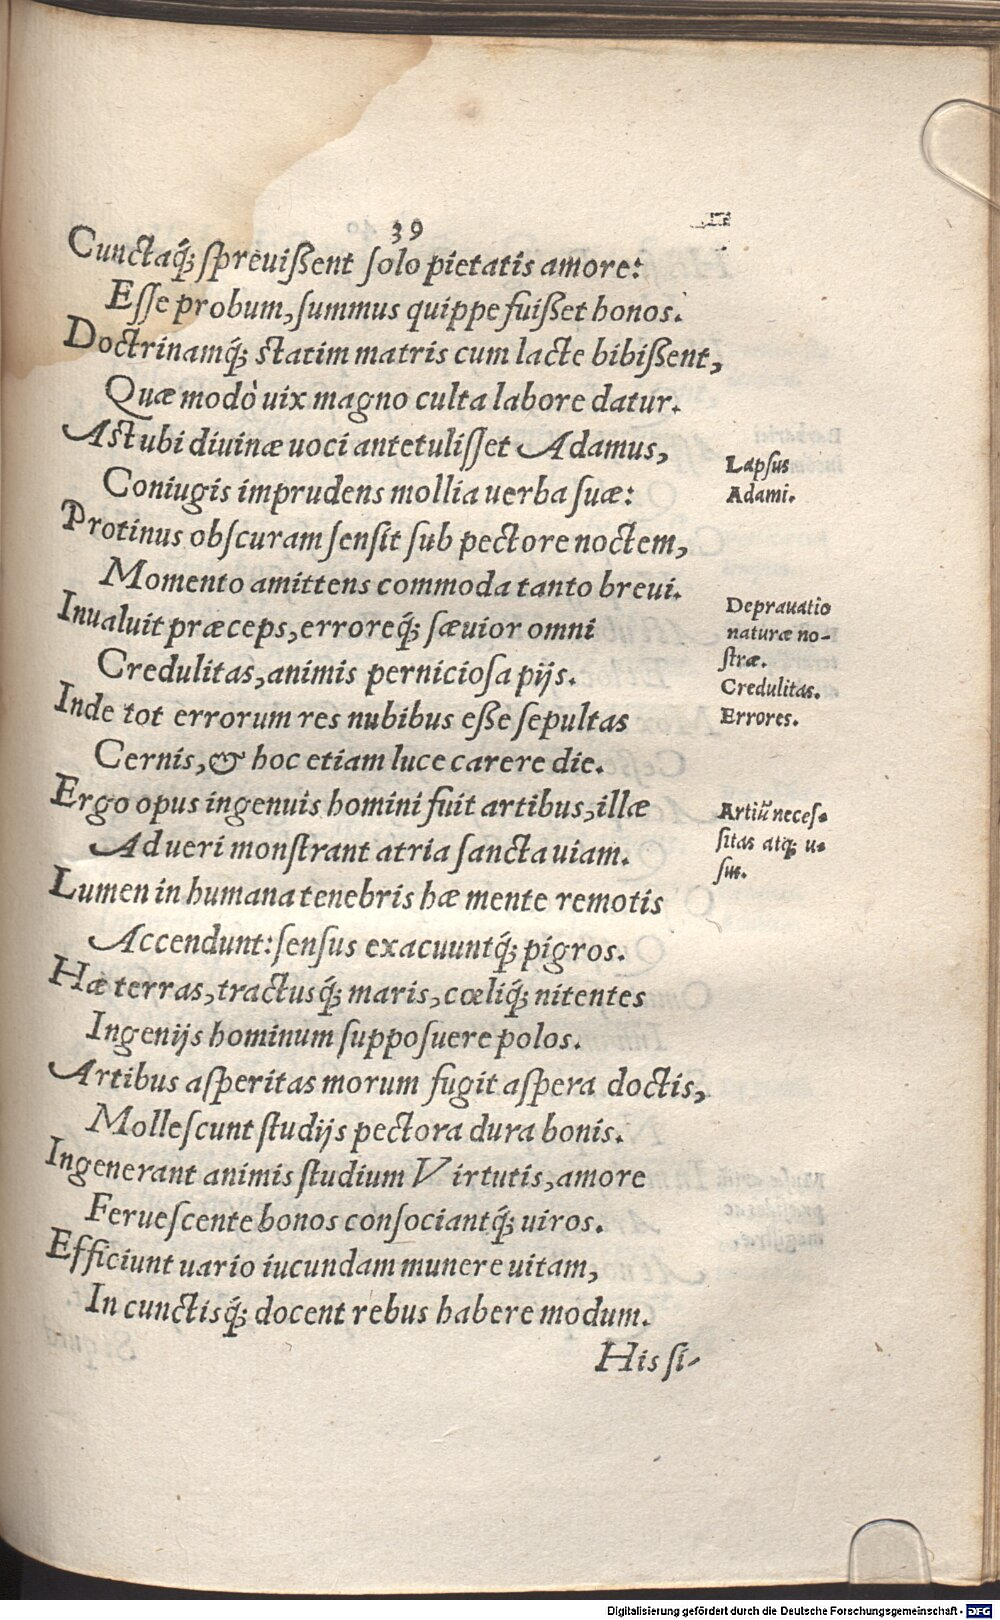 39
Cunctaq́; ſpreuiſſent ſolo pietatis amore:
Eſſe probum, ſummus quippe fuiſſet honos.
Doctrinamq́; statim matris cum lacte bibiſſent,
Quæ modò uix magno culta labore datur.
Ast ubi diuinæ uoci antetuliſſet Adamus,
Coniugis imprudens mollia uerba ſuæ:
Protinus obſcuram ſenſit ſub pectore noctem,
Momento amittens commoda tanto breui.
Inualuit præceps, erroreq́; ſæuior omni
Credulitas, animis pernicioſa pijs.
Inde tot errorum res nubibus eſſe ſepultas
Cernis, & hoc etiam luce carere die.
Ergo opus ingenuis homini fuit artibus, illæ
Ad ueri monſtrant atria ſancta uiam.
Lumen in humana tenebris hæ mente remotis
Accendunt: ſenſus exacuuntq́; pigros.
Hæ terras, tractusq́; maris, cœliq́; nitentes
Ingenijs hominum ſuppoſuere polos.
Artibus aſperitas morum fugit aſpera doctis,
Molleſcunt ſtudijs pectora dura bonis.
Ingenerant animis ſtudium Virtutis, amore
Ferueſcente bonos conſociantq́; uiros.
Efficiunt uario iucundam munere uitam,
In cunctisq́; docent rebus habere modum.
His ſi-
Lapſus
Adami.
Deprauatio
naturæ no-
ſtræ.
Credulitas.
Errores.
Artiũ neceſ-
ſitas atq; u-
ſus.
Digitalisierung gefördert durch die Deutsche Forschungsgemeinschaft - DFG